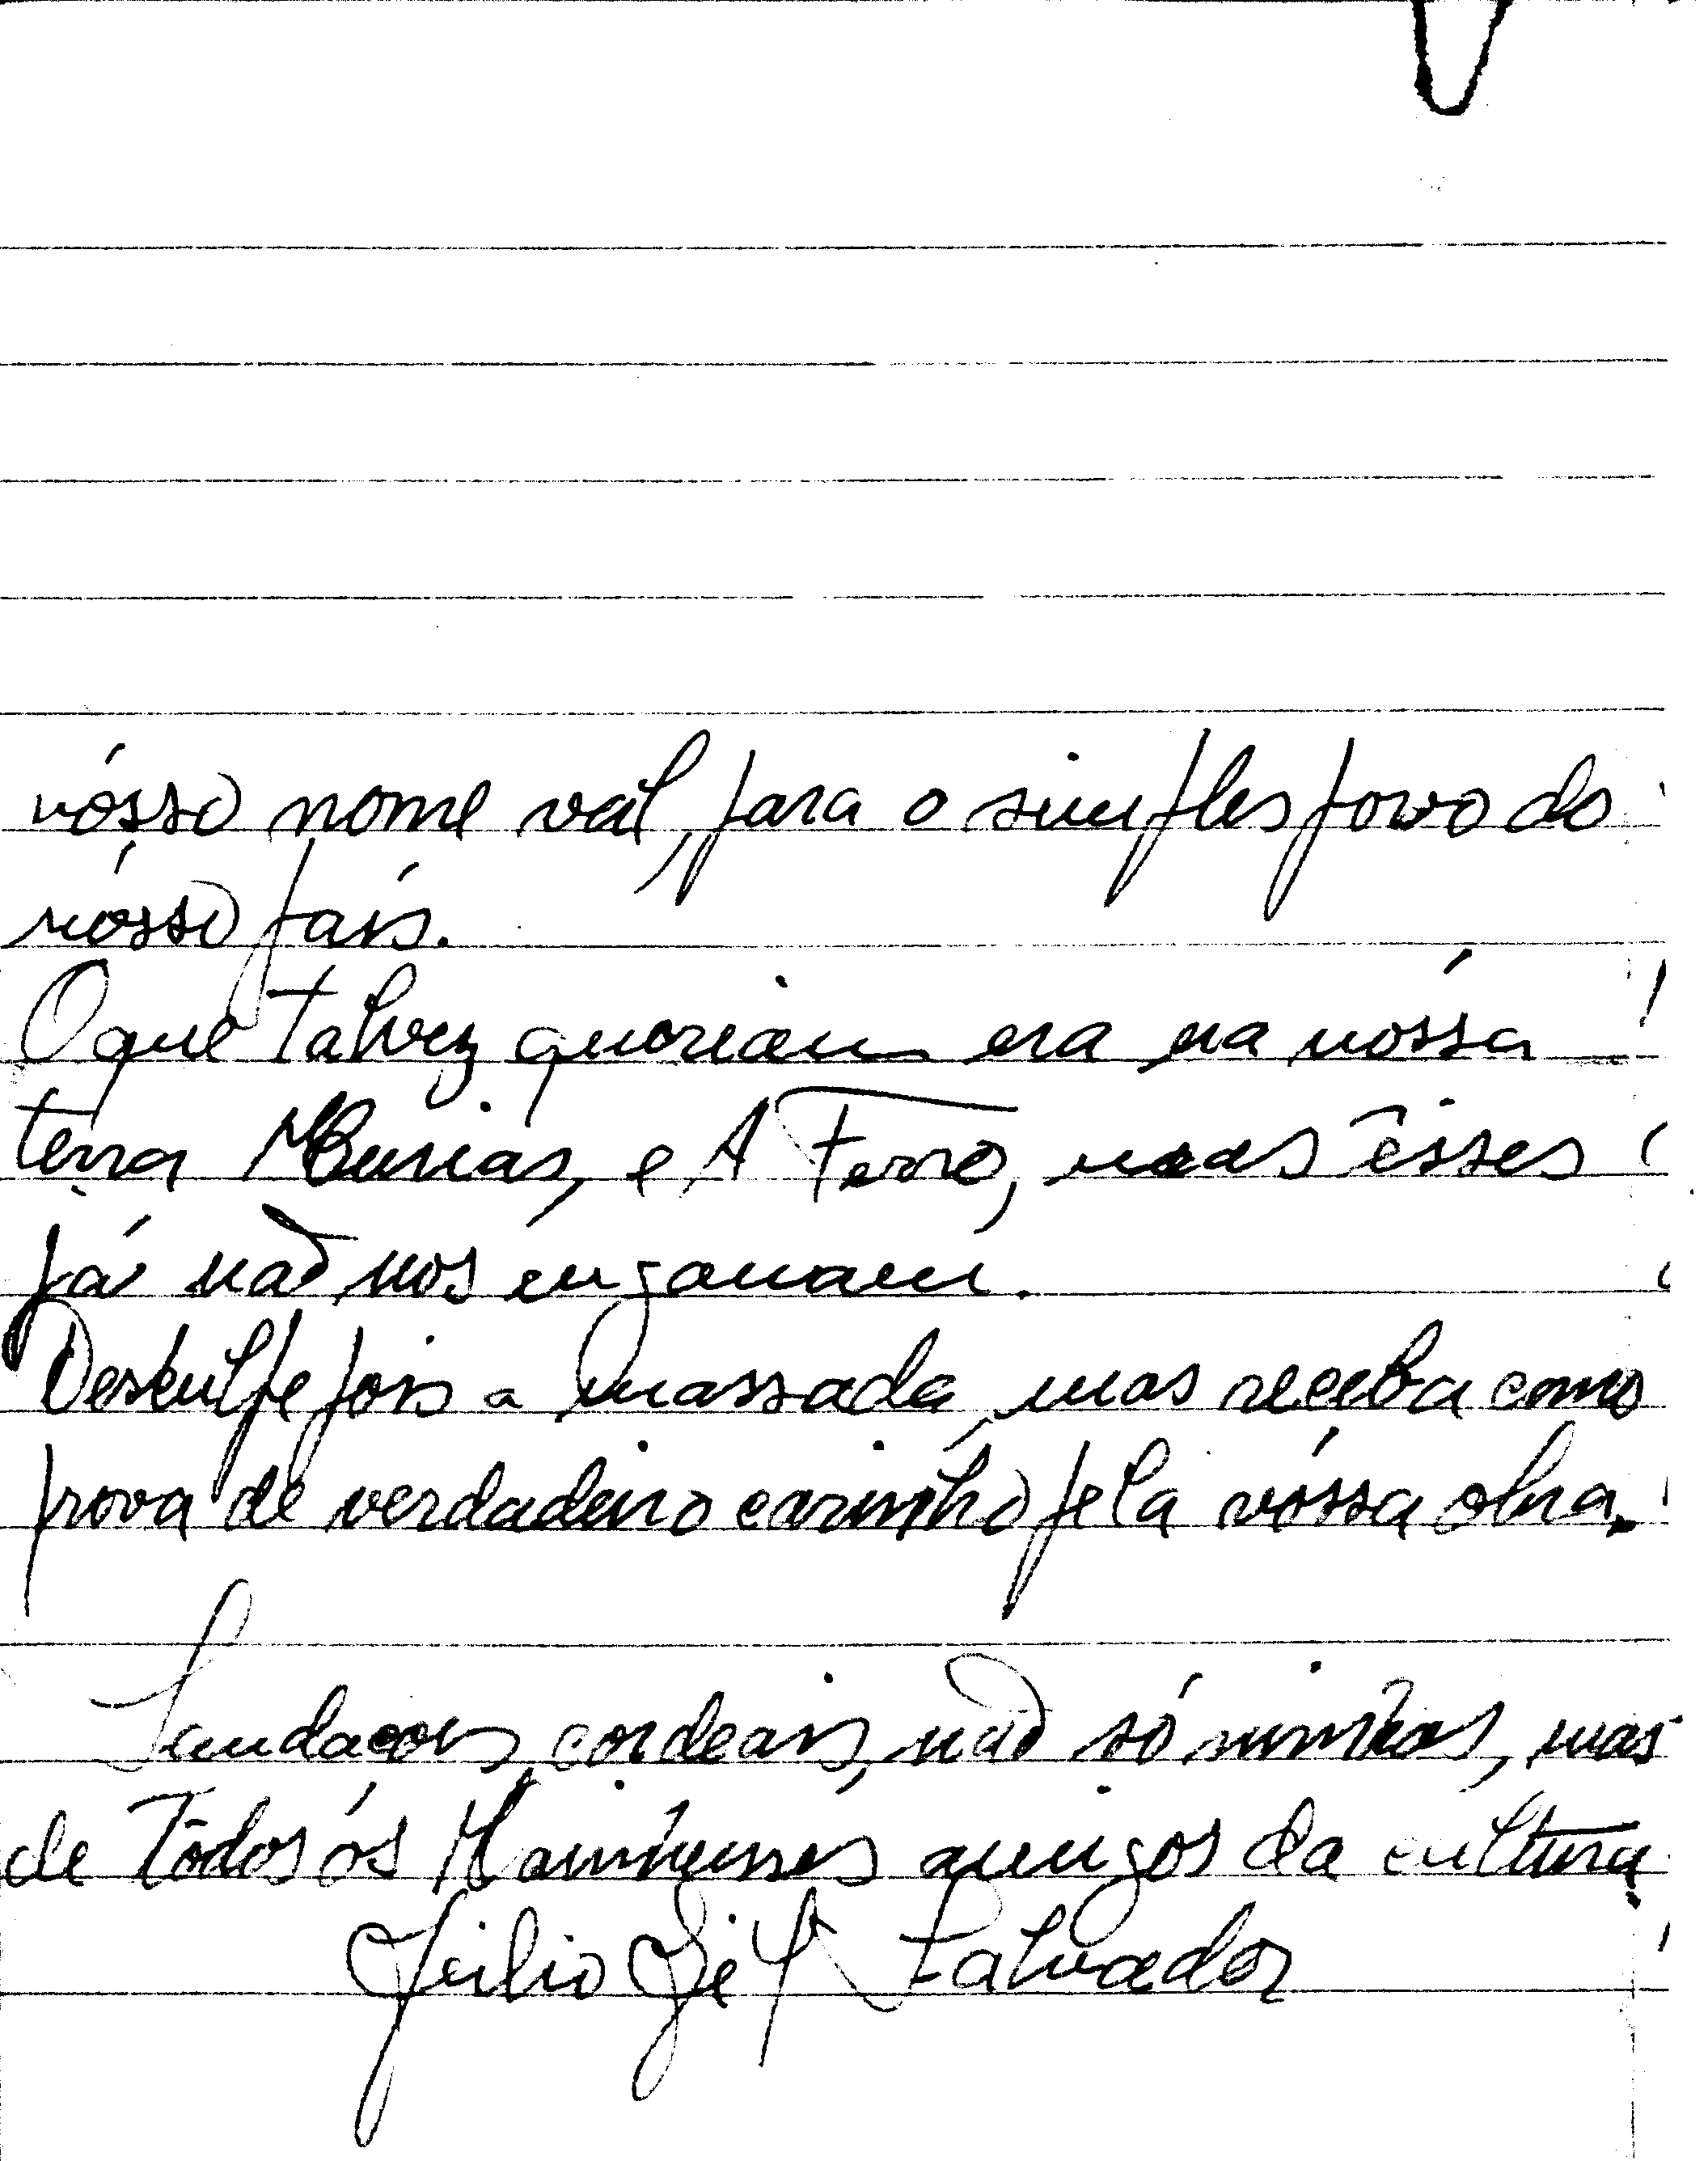 vósso nome val, para o simples povo do
nósso país.
O que talvez queriam era na nóssa
terra Murias, e A Ferro, mas êsses
já não nos enganam.
Desculpe pois a massada, mas receba como
prova de verdadeiro carinho pela vóssa obra.
Saudacoes, cordeais, não só minhas, mas
de Todos ós amigos da cultura
Júlio Salvador